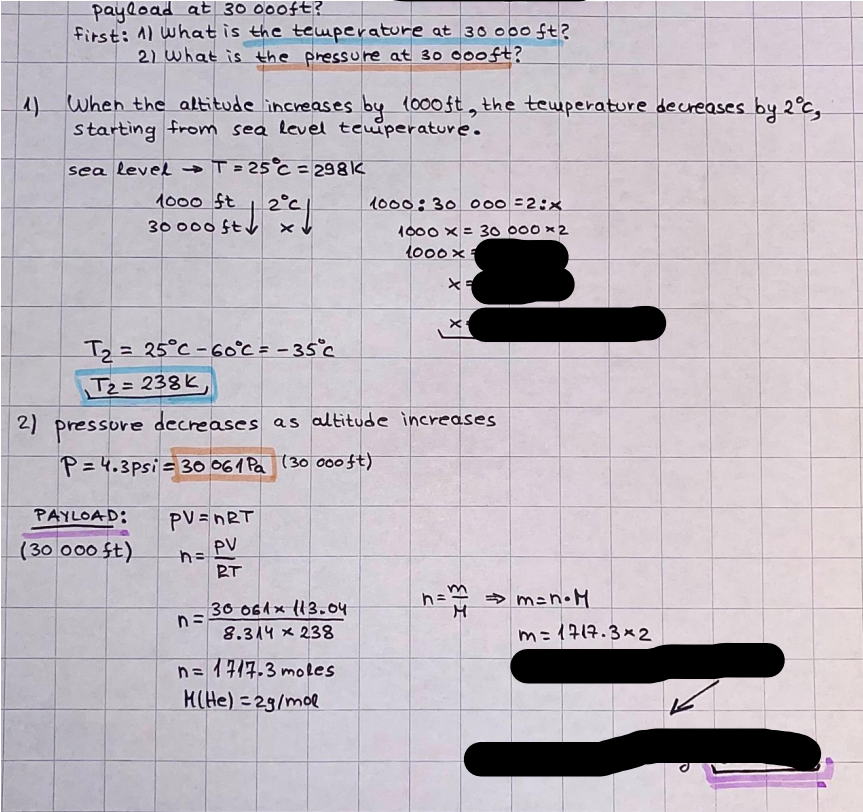 payload at 30 000ft?
first: 1) What is the temperature at 30 000 ft?
2) What is the pressure at 30 000ft?
1) When the altitude increases by 1000ft, the temperature decreases by 2°C,
starting from sea level temperature.
sea level → T = 25°C = 298K
1000 ft ↓ 2°C ↓
30 000 ft x
1000 : 30 000 = 2 : x
1000 x = 30 000 × 2
1000 x =
x =
x =
T₂ = 25°C - 60°C = -35°C
T₂ = 238K
2) pressure decreases as altitude increases
P = 4.3psi = 30 061Pa (30 000ft)
PAYLOAD:
(30 000 ft)
pV = nRT
n = PV / RT
n = 30 061 × 113.04 / 8.314 × 238
n = 1717.3 moles
M(He) = 2g/mol
n = m / M ⇒ m = n · M
m = 1717.3 × 2